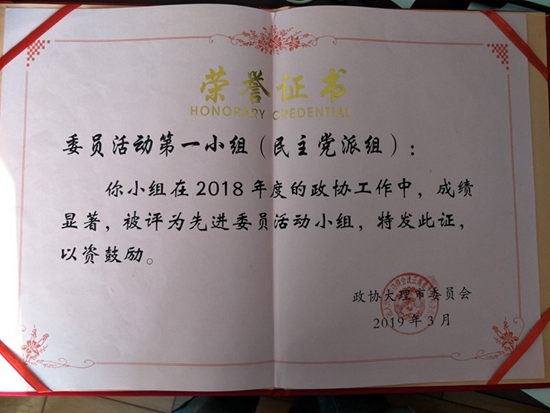 荣誉证书
HONORARY CREDENTIAL
委员活动第一小组（民主党派组）：
你小组在2018年度的政协工作中，成绩
显著，被评为先进委员活动小组，特发此证，
以资鼓励。
政协大理市委员会
2019年3月